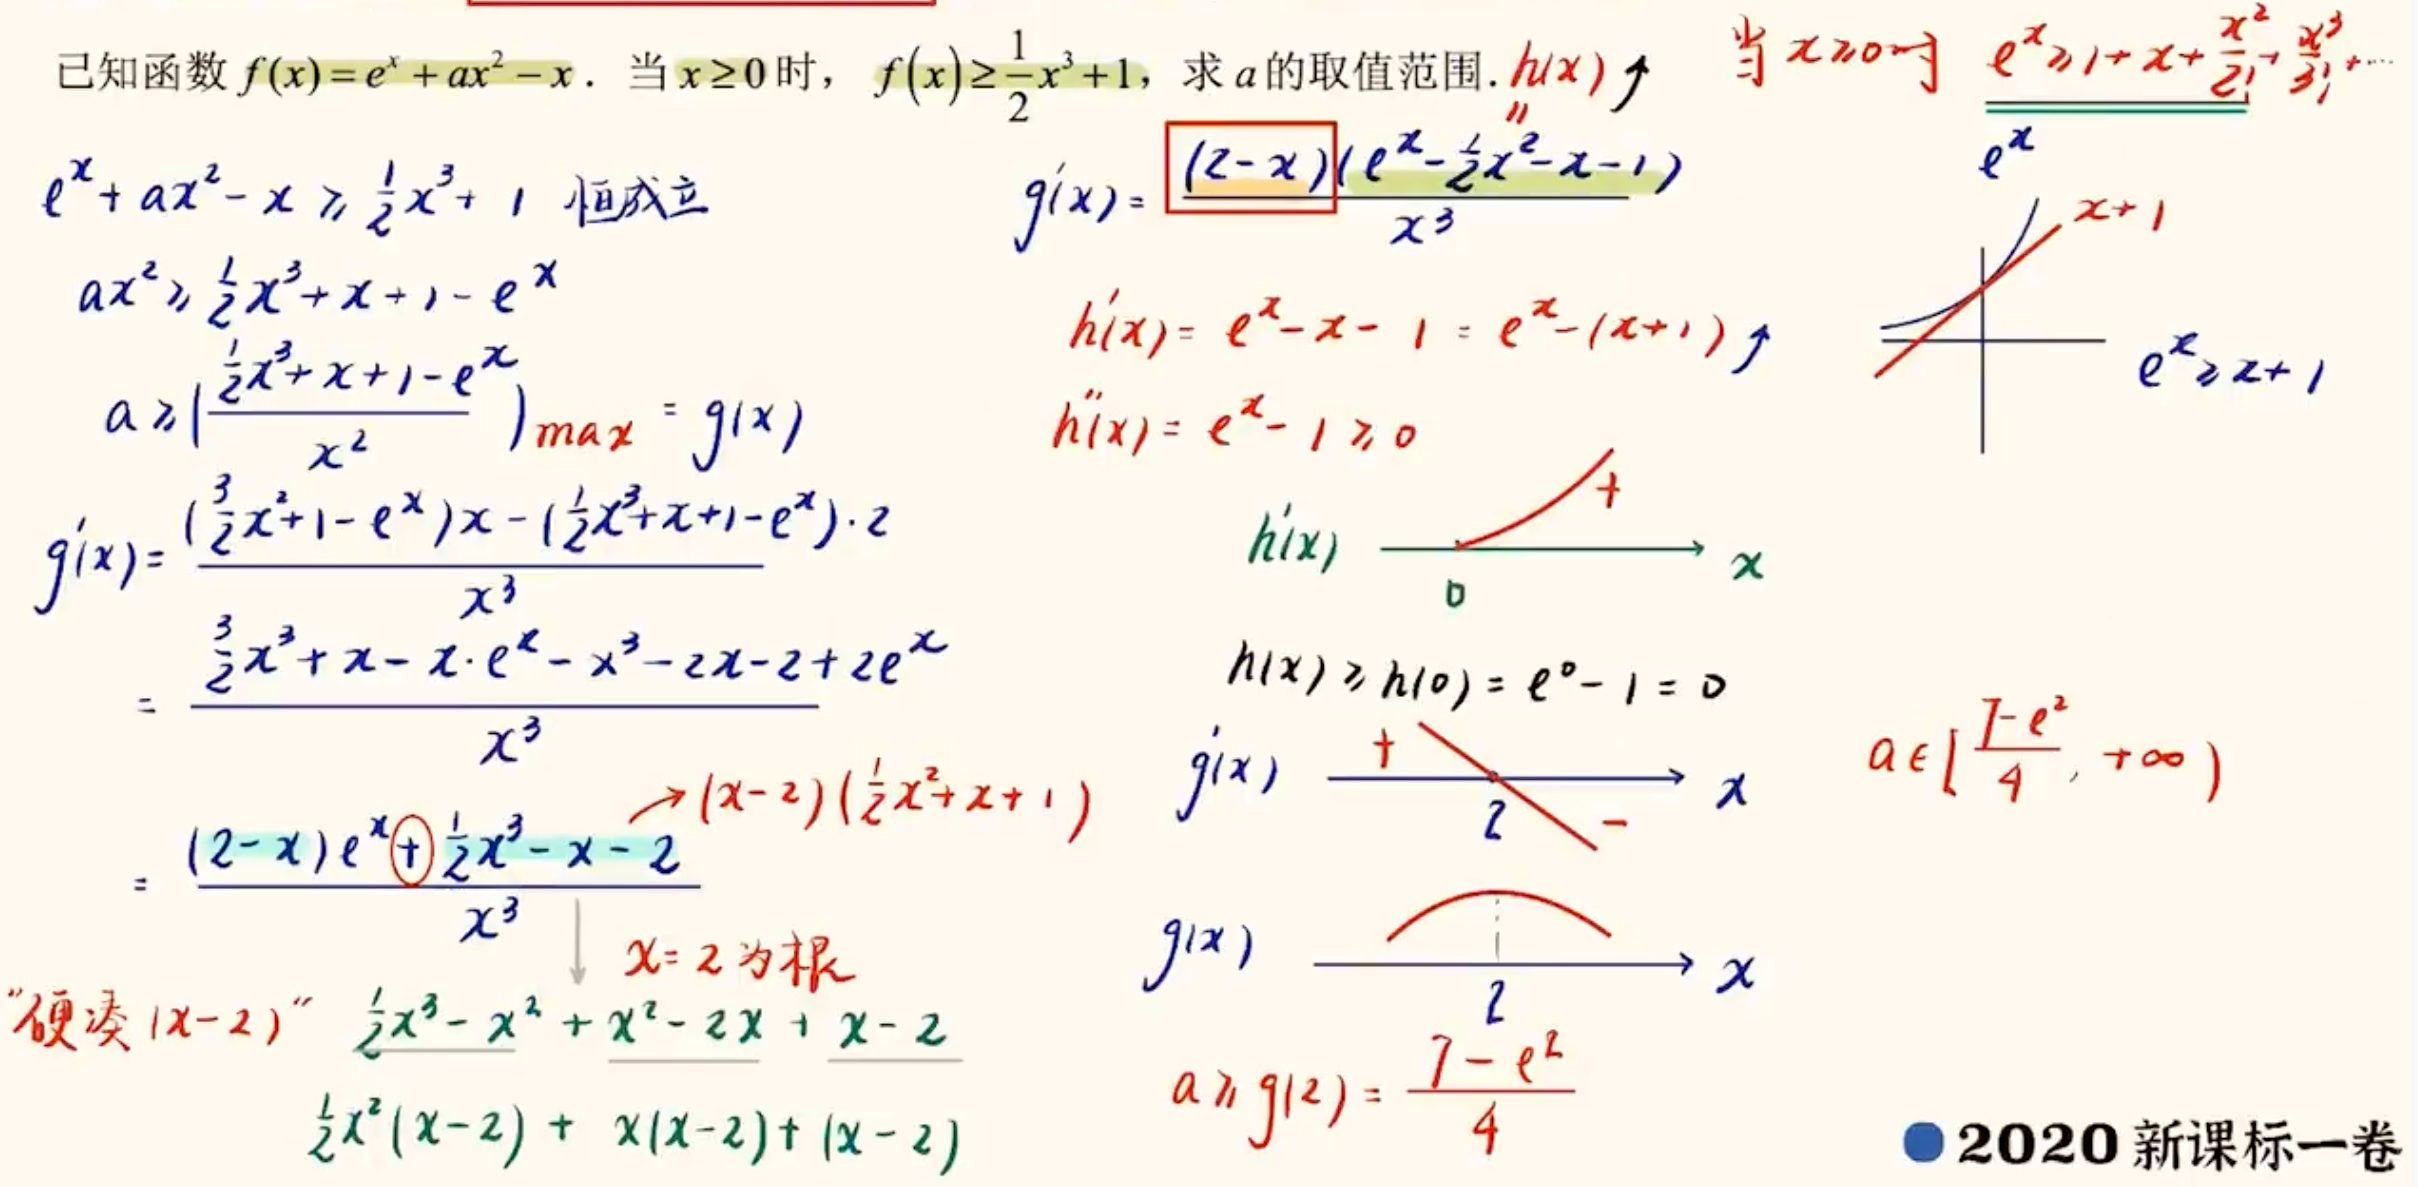 已知函数 f(x)=eˣ+ax²−x. 当 x≥0 时, f(x)≥\frac{1}{2}x³+1, 求 a 的取值范围.
当 x≥0时 eˣ≥1+x+\frac{x²}{2!}+\frac{x³}{3!}+…
eˣ+ax²−x≥\frac{1}{2}x³+1 恒成立
ax²≥\frac{1}{2}x³+x+1−eˣ
a≥(\frac{\frac{1}{2}x³+x+1−eˣ}{x²})max = g(x)
g'(x)=\frac{(\frac{3}{2}x²+1−eˣ)x−(\frac{1}{2}x³+x+1−eˣ)·2}{x³}
=\frac{\frac{3}{2}x³+x−x·eˣ−x³−2x−2+2eˣ}{x³}
=\frac{(2−x)eˣ+\frac{1}{2}x³−x−2}{x³}
→(x−2)(\frac{1}{2}x²+x+1)
x=2为根
"硬凑(x−2)" \frac{1}{2}x³−x²+x²−2x+x−2
\frac{1}{2}x²(x−2)+x(x−2)+(x−2)
h(x)↗
"
g'(x)=\frac{(2−x)(eˣ−\frac{1}{2}x²−x−1)}{x³}
h'(x)=eˣ−x−1=eˣ−(x+1)↗
h''(x)=eˣ−1≥0
h'(x) + x
0
h(x)≥h(0)=e⁰−1=0
g'(x) + x
2 −
g(x) x
2
a≥g(2)=\frac{7−e²}{4}
eˣ
x+1
eˣ≥x+1
a∈[\frac{7−e²}{4},+∞)
2020新课标一卷